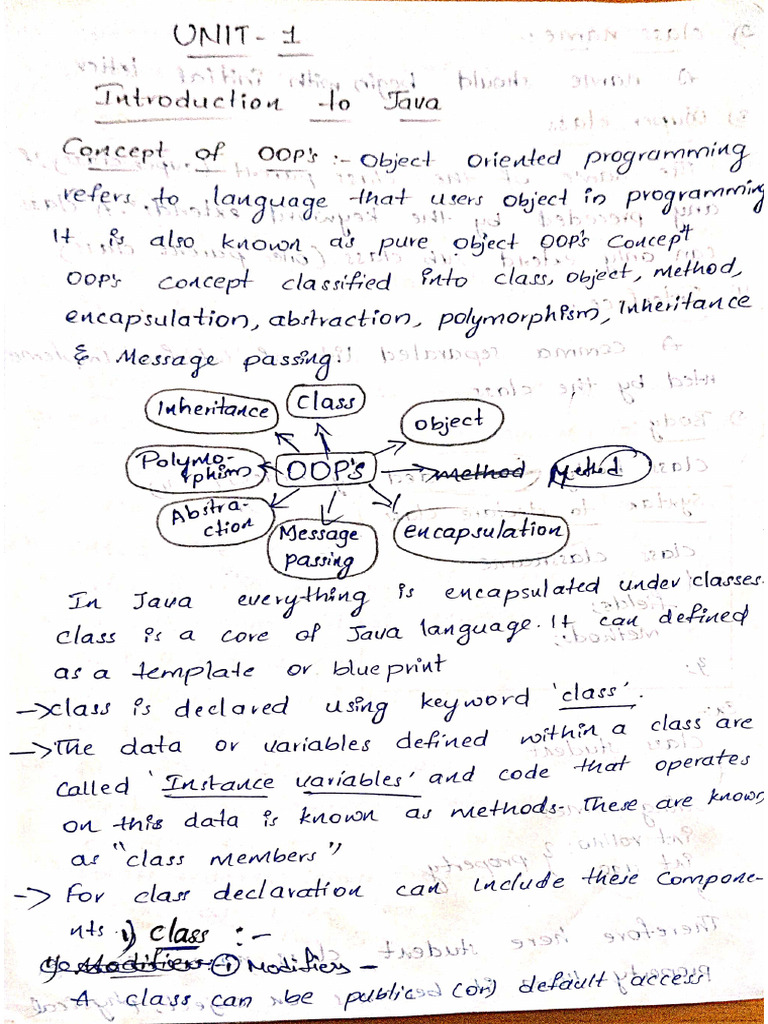 UNIT - 1
Introduction to Java
Concept of OOP's :- Object Oriented programming
refers to language that users object in programming
It is also known as pure object OOP's Concept
OOP's concept classified into class, object, method,
encapsulation, abstraction, polymorphism, Inheritance
& Message passing.
Inheritance
Class
Object
Polymo-
rphism
OOP'S
method
Method
Abstra-
ction
Message
passing
encapsulation
In Java everything is encapsulated under classes.
class is a core of Java language. It can defined
as a template or blueprint
→ class is declared using keyword 'class'.
→ The data or variables defined within a class are
called 'Instance variables' and code that operates
on this data is known as methods. These are known
as "class members"
→ For class declaration can include these compone-
nts. i) class :-
Modifiers ① Modifiers -
A class can be public (or) default access